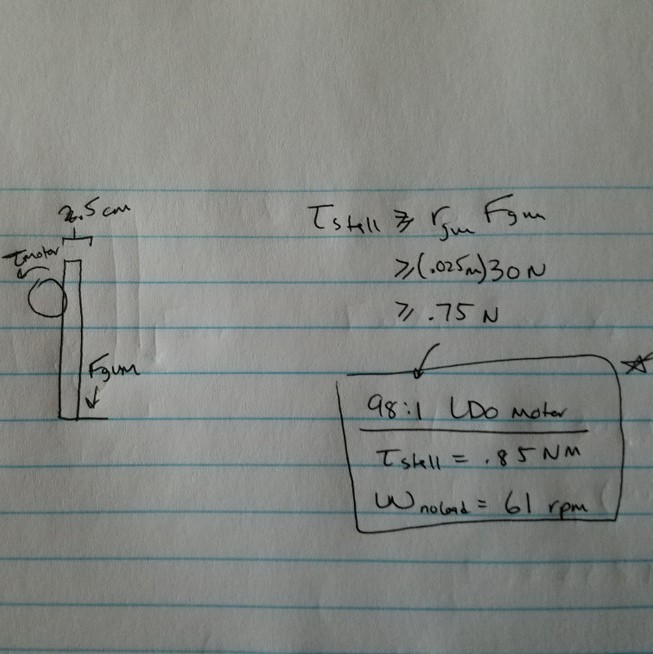 2.5 cm
τmotor
Fgum
τstall ⩾ rgum Fgum
⩾ (.025m) 30 N
⩾ .75 N
98:1 LDO motor
τstall = .85 NM
ωnoload = 61 rpm